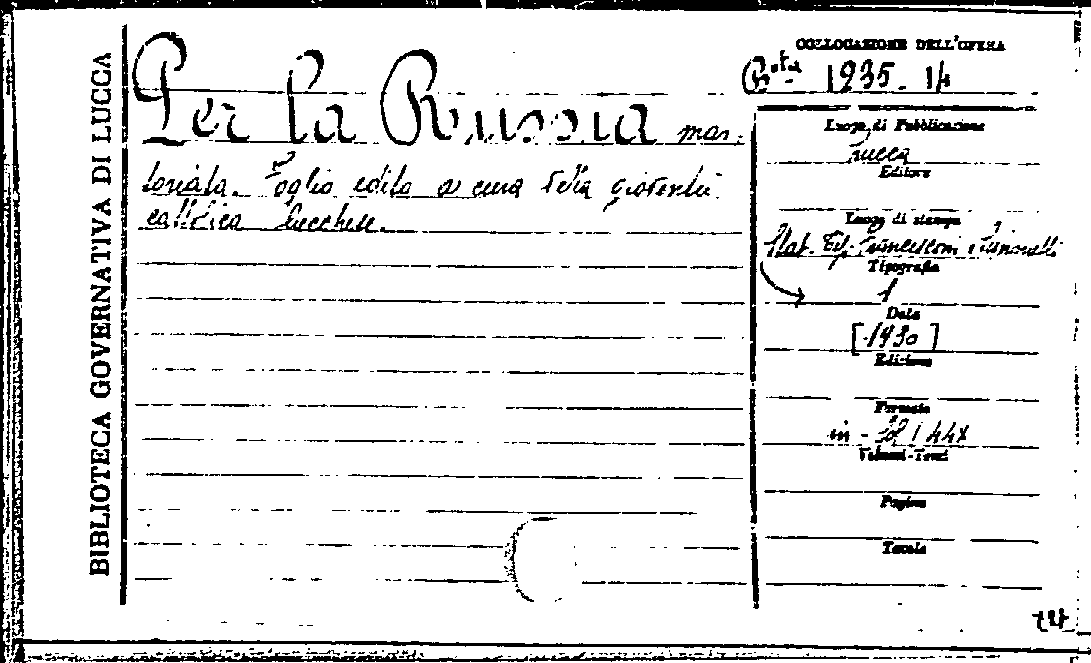 BIBLIOTECA GOVERNATIVA DI LUCCA
Per la Russia mar-
toriata. Foglio edito a cura della gioventù
cattolica lucchese.
COLLOCAZIONE DELL'OPERA
B.ta 1235.14
Luogo di Pubblicazione
Lucca
Editore
Luogo di stampa
Stab. Tip. Francesconi e Simonelli
Tipografia
Data
[1930]
Edizione
Formato
in-
Volumi-Tomi
Pagine
Tavole